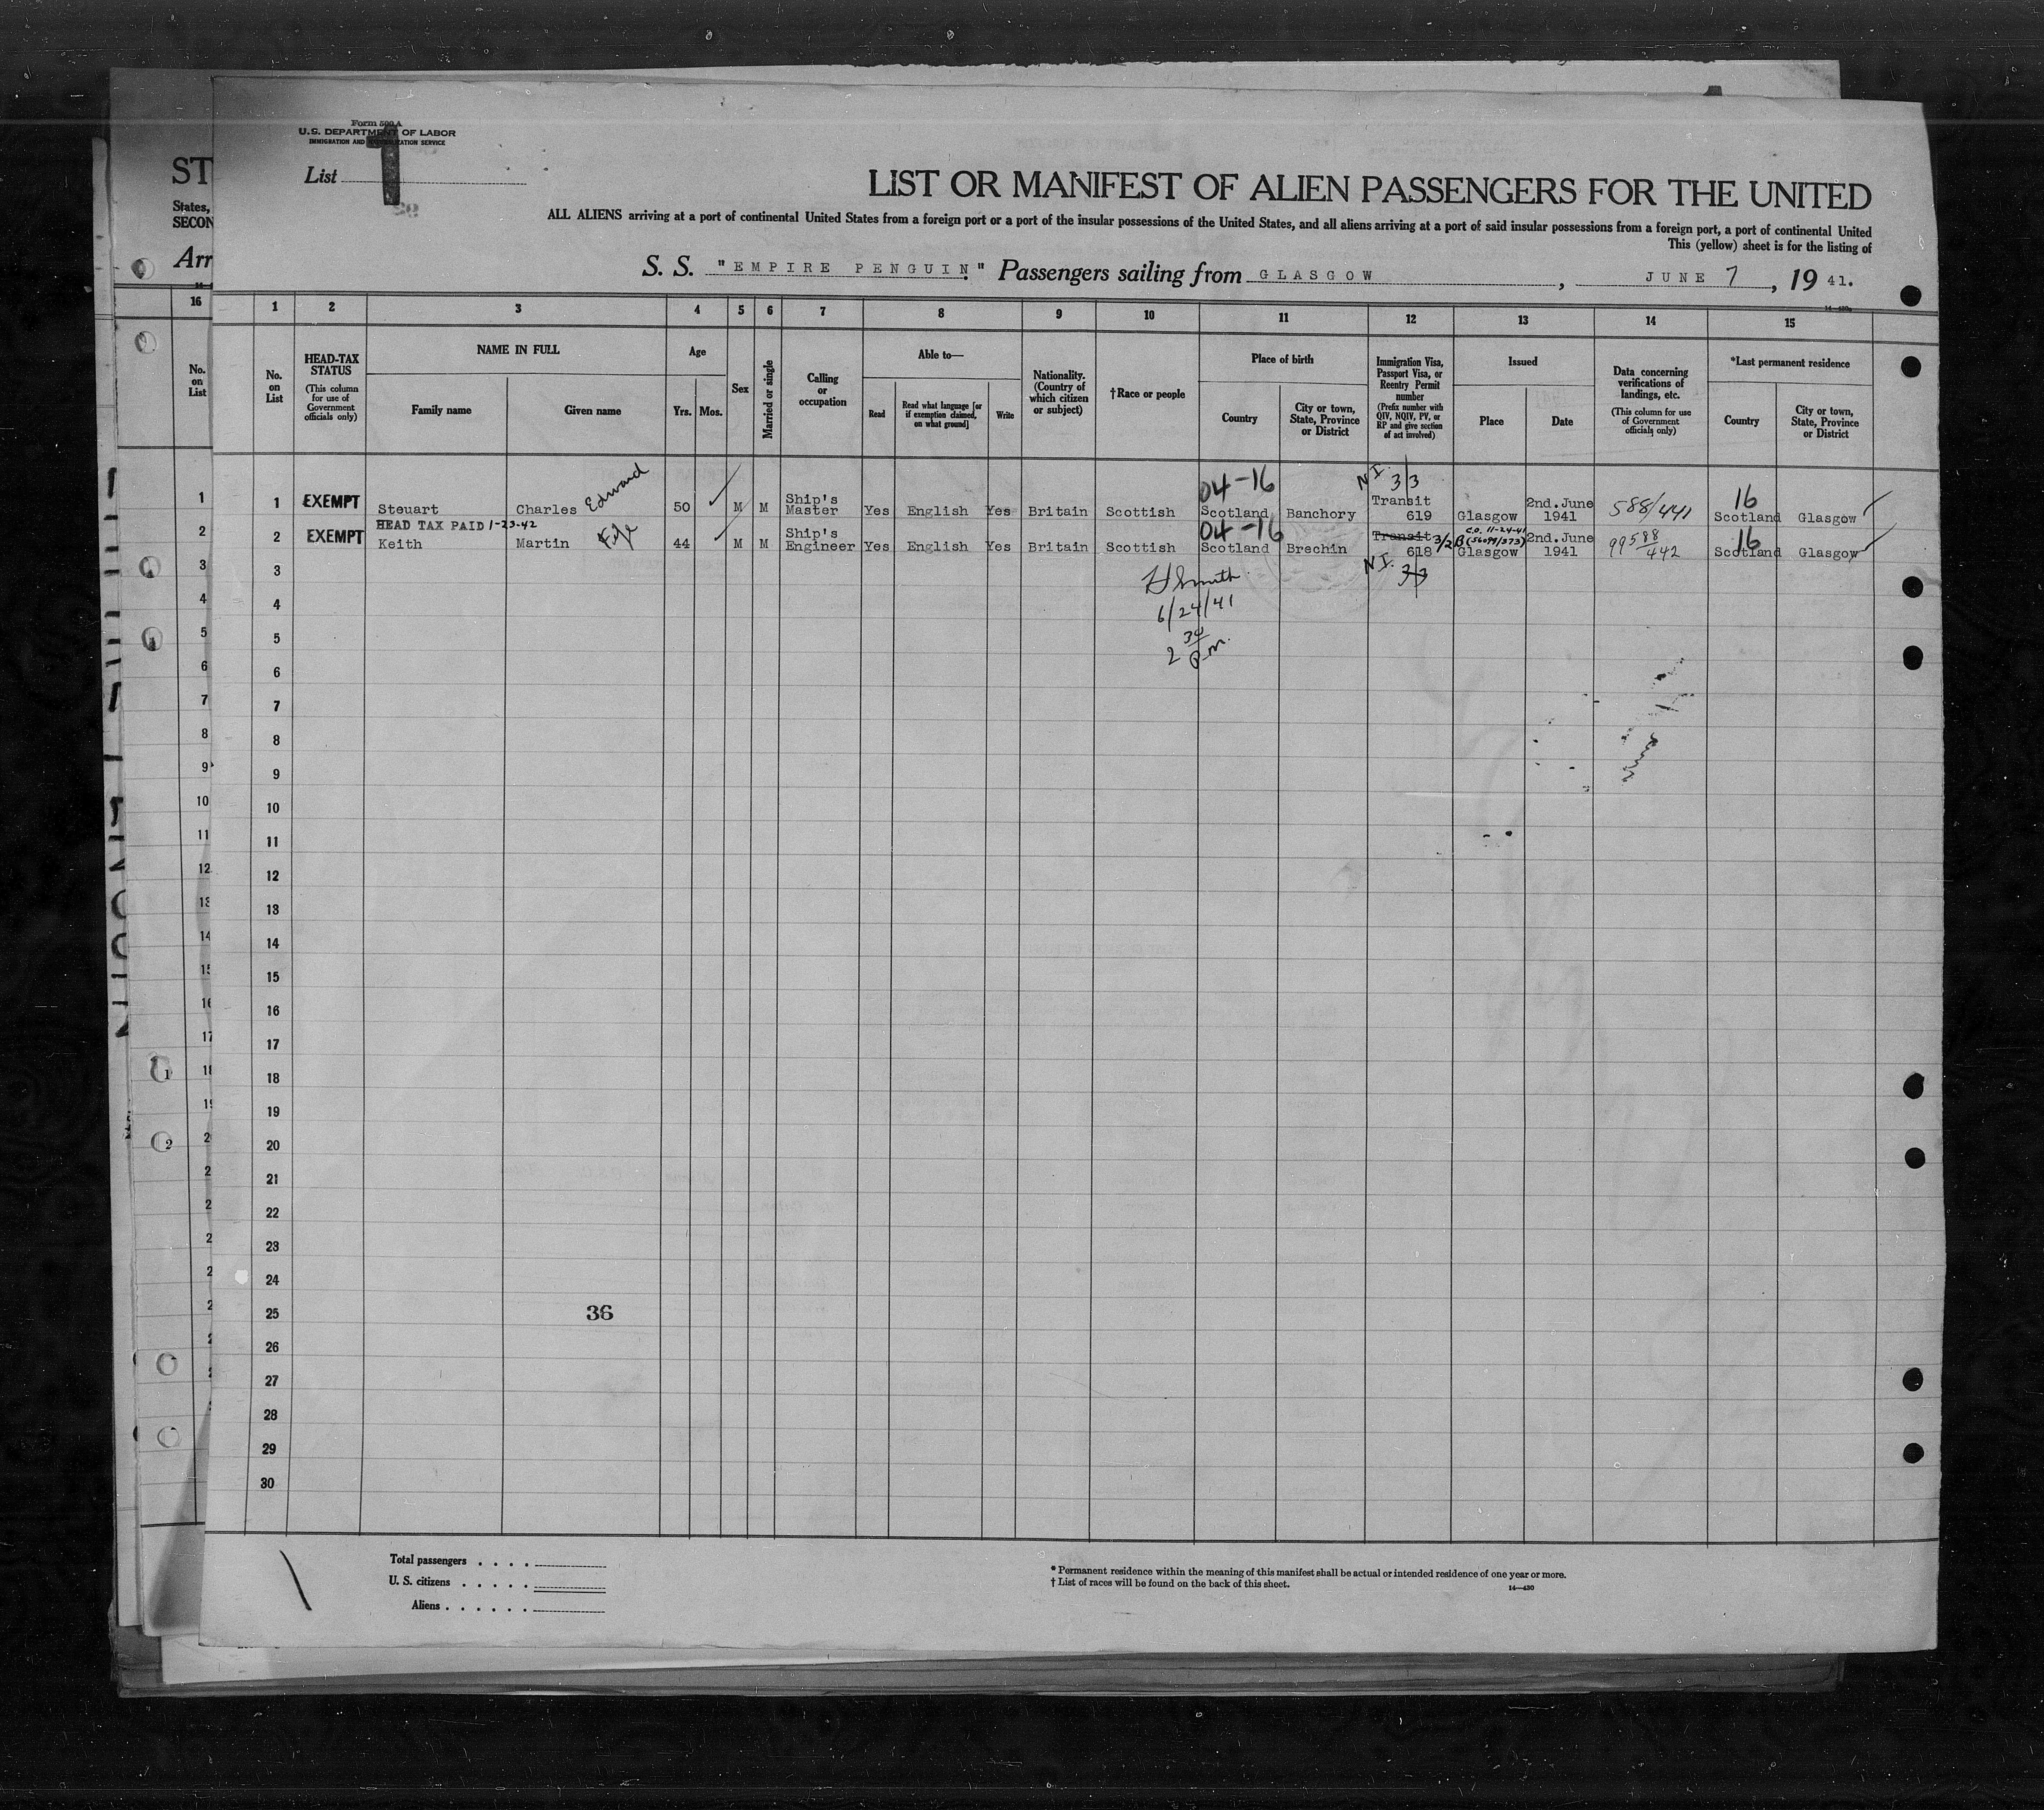 Form 500 A
U.S. DEPARTMENT OF LABOR
IMMIGRATION AND NATURALIZATION SERVICE
List 1
LIST OR MANIFEST OF ALIEN PASSENGERS FOR THE UNITED
ALL ALIENS arriving at a port of continental United States from a foreign port or a port of the insular possessions of the United States, and all aliens arriving at a port of said insular possessions from a foreign port, a port of continental United
This (yellow) sheet is for the listing of
S. S. "EMPIRE PENGUIN." Passengers sailing from GLASGOW, JUNE 7, 19 41.
1 2 3 4 5 6 7 8 9 10 11 12 13 14 15
No. on List
HEAD-TAX STATUS (This column for use of Government officials only)
NAME IN FULL
Family name Given name
Age
Yrs. Mos.
Sex
Married or single
Calling or occupation
Able to—
Read Read what language [or if exemption claimed, on what ground] Write
Nationality. (Country of which citizen or subject)
†Race or people
Place of birth
Country City or town, State, Province or District
Immigration Visa, Passport Visa, or Reentry Permit number (Prefix number with QIV, NQIV, PV, or RP and give section of act involved)
Issued
Place Date
Data concerning verifications of landings, etc. (This column for use of Government officials only)
*Last permanent residence
Country City or town, State, Province or District
04-16 N.I. 3/3 16
1 EXEMPT Steuart Charles Edward 50 M M Ship's Master Yes English Yes Britain Scottish Scotland Banchory Transit 619 Glasgow 2nd.June 1941 588/441 Scotland Glasgow
HEAD TAX PAID 1-23-42
04-16 C.O. 11-24-41 16
2 EXEMPT Keith Martin 44 M M Ship's Engineer Yes English Yes Britain Scottish Scotland Brechin Transit 3/2 B (56099/373) 618 Glasgow 2nd.June 1941 99588/442 Scotland Glasgow
N.I. 33
3
H Smith
4
6/24/41
5
2 30 P.m.
6
7
8
9
10
11
12
13
14
15
16
17
18
19
20
21
22
23
24
25 36
26
27
28
29
30
Total passengers
U. S. citizens
Aliens
* Permanent residence within the meaning of this manifest shall be actual or intended residence of one year or more.
† List of races will be found on the back of this sheet.
14—430
ST
States,
SECON
Arr
16
No. on List
1
2
3
4
5
6
7
8
9
10
11
12